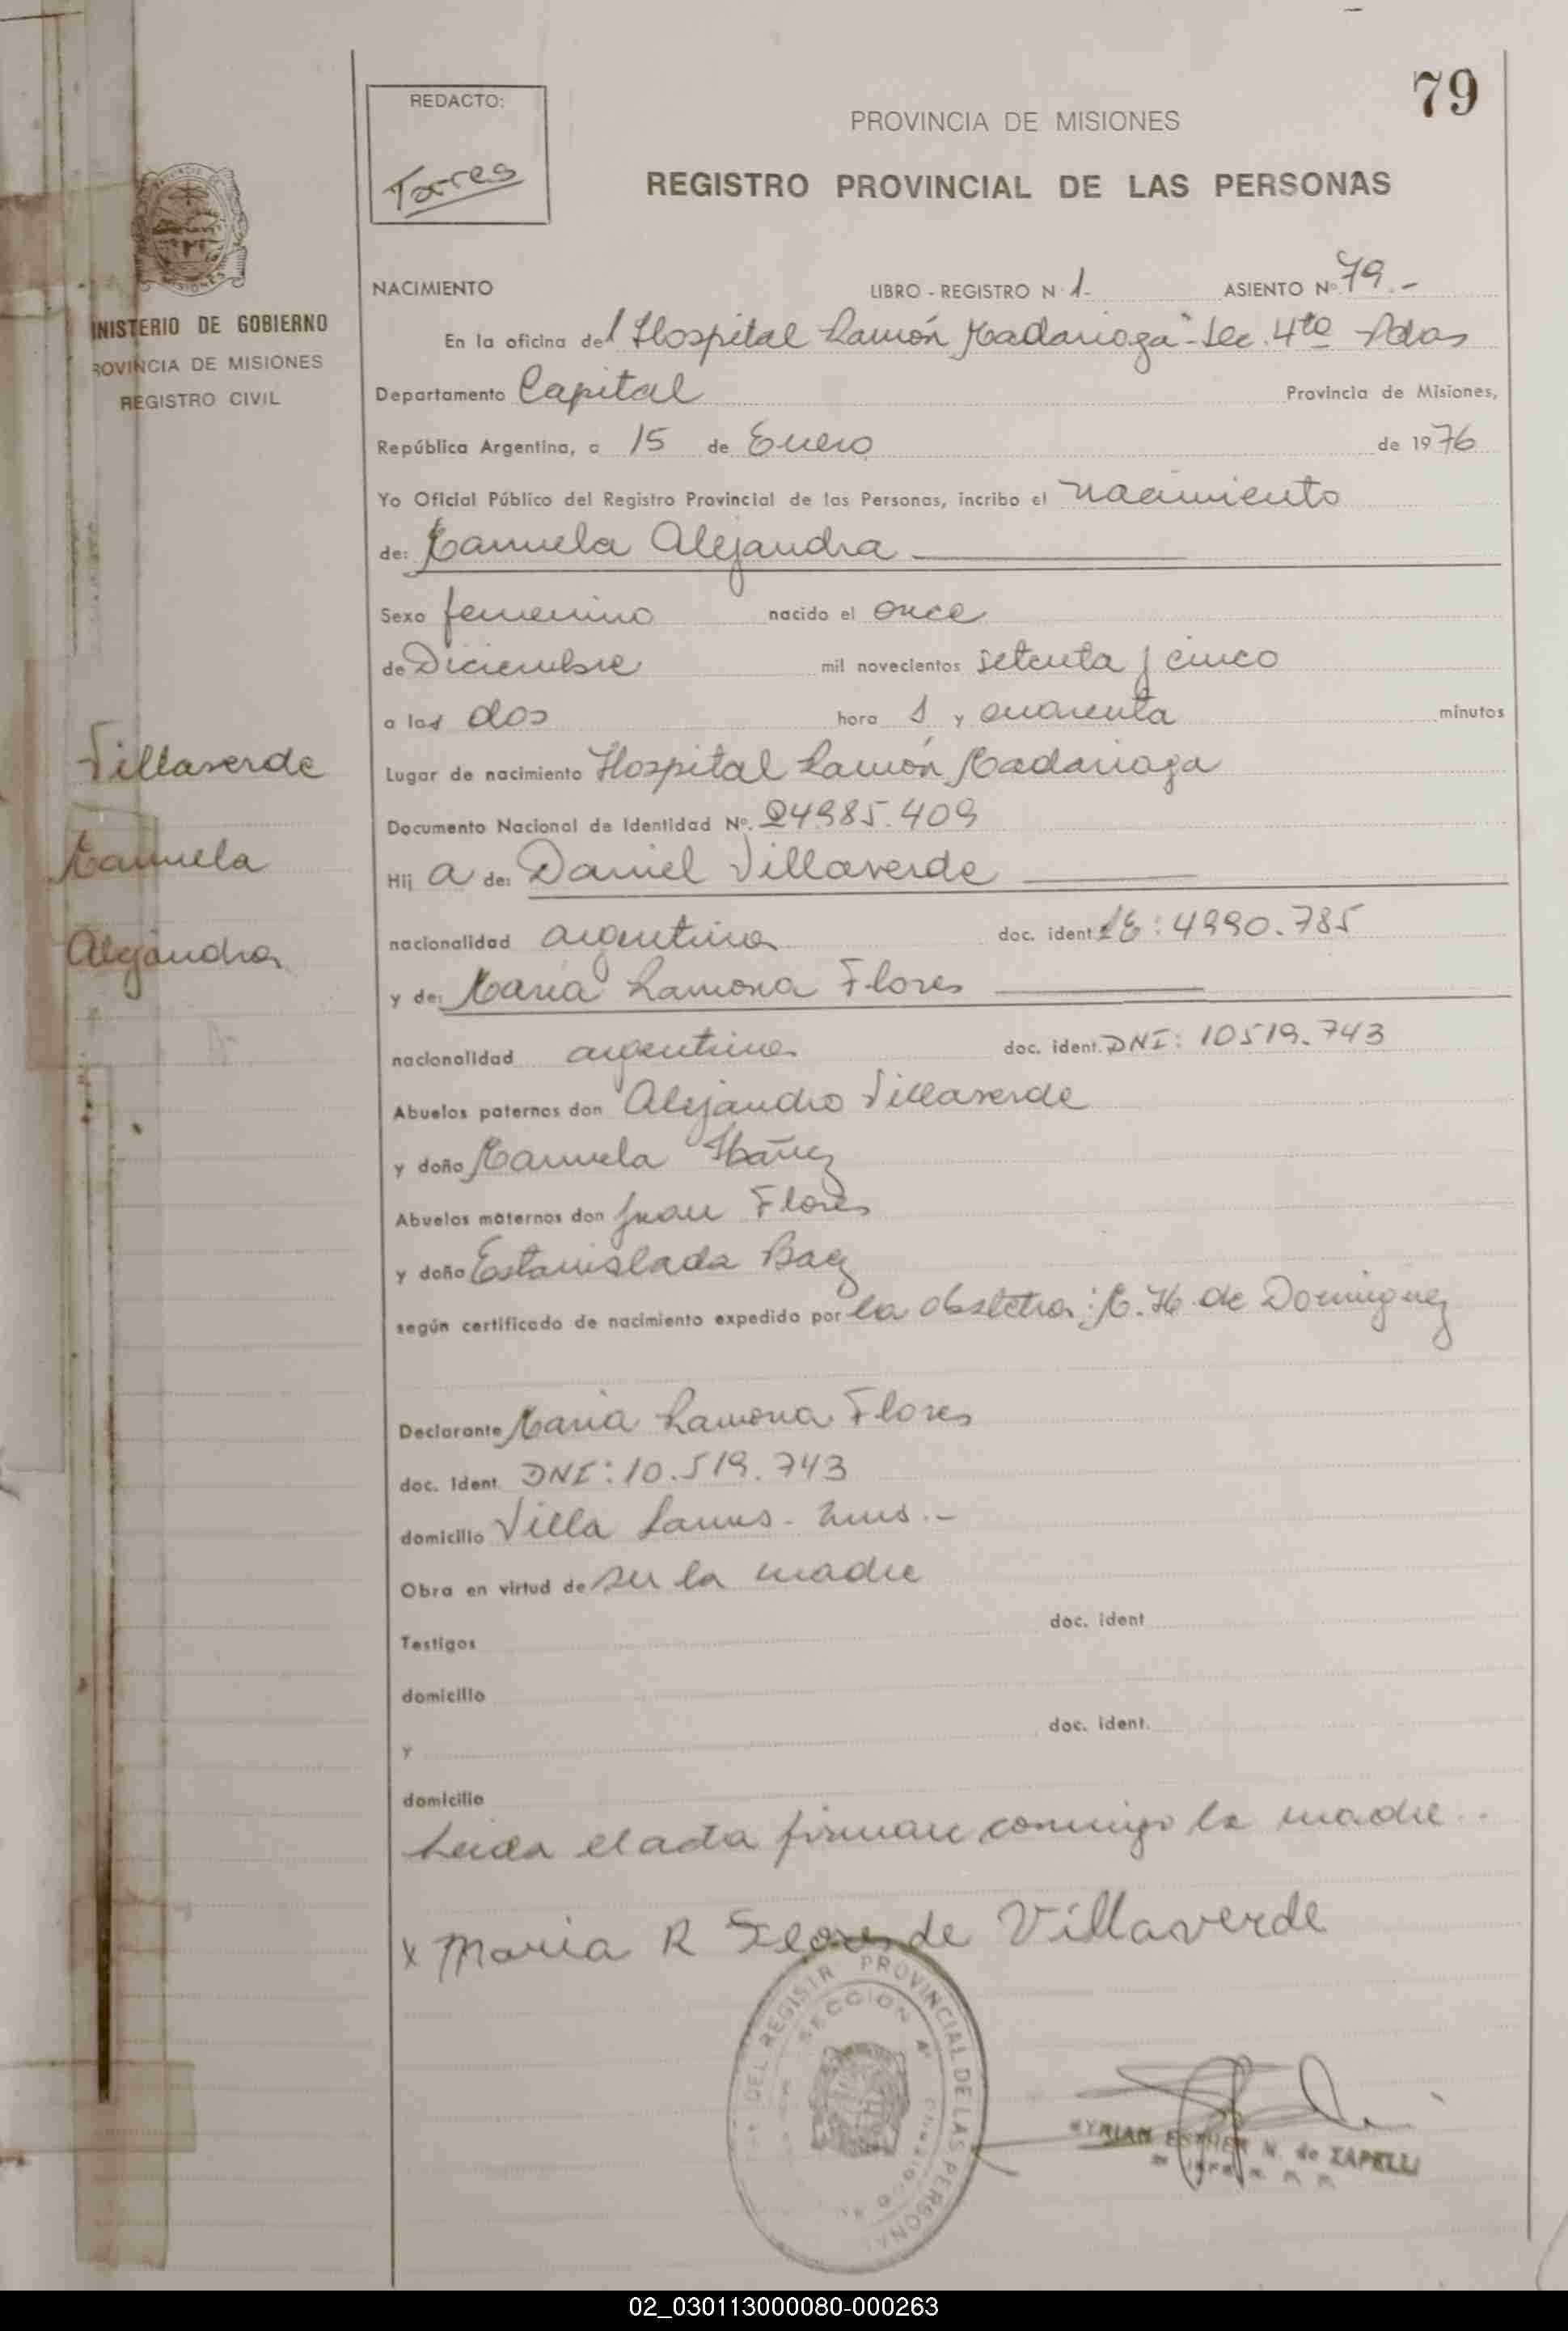 79
REDACTO:
Torres
PROVINCIA DE MISIONES
REGISTRO PROVINCIAL DE LAS PERSONAS
INISTERIO DE GOBIERNO
ROVINCIA DE MISIONES
REGISTRO CIVIL
NACIMIENTO LIBRO - REGISTRO N 1- ASIENTO Nº 79.-
En la oficina del Hospital Ramón Madariaga"- Sec. 4ta Pdas
Departamento Capital Provincia de Misiones,
República Argentina, a 15 de Enero de 1976
Yo Oficial Público del Registro Provincial de las Personas, incribo el nacimiento
de: Manuela Alejandra
Sexo femenino nacido el once
de Diciembre mil novecientos setenta y cinco
a las dos hora s y cuarenta minutos
Lugar de nacimiento Hospital Ramón Madariaga
Documento Nacional de Identidad Nº. 24985.409
Hij a de: Daniel Villaverde
nacionalidad argentina doc. ident LE: 4990.785
y de: Maria Ramona Flores
nacionalidad argentina doc. ident. DNI: 10519.743
Abuelos paternos don Alejandro Villaverde
y doña Manuela Ibáñez
Abuelos maternos don Juan Flores
y doña Estanislada Baez
según certificado de nacimiento expedido por la obstetra: M. H. de Dominguez
Declarante Maria Ramona Flores
doc. Ident. DNI: 10.519.743
domicilio Villa Lanus-
Obra en virtud de ser la madre
Testigos doc. ident
domicilio
y doc. ident.
domicilio
Leida el acta firman conmigo la madre..
x Maria R Flores de Villaverde
Villaverde
Manuela
Alejandra
DEL REGISTR PROVINCIAL DE LAS PERSONA
SECCION 4ª
MYRIAN ESTHER N. de ZAPELLI
02_030113000080-000263